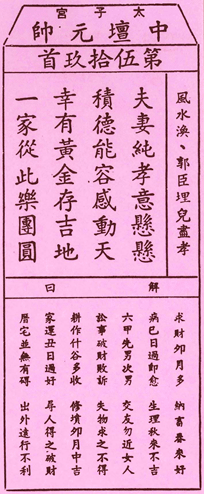 太子宮
中壇元帥
第伍拾玖首
風水渙、郭臣埋兒盡孝
夫妻純孝意懸懸
積德能容感動天
幸有黃金存吉地
一家從此樂團圓
解曰
求財卯月多 納畜春來好
病巳日過即愈 生理秋來不吉
六甲先男次男 交友勿近女人
訟事破財敗訴 失物求之不得
耕作什谷多收 修墳卯月中吉
家運丑日過好 尋人得之破財
厝宅並無有碍 出外遠行不利